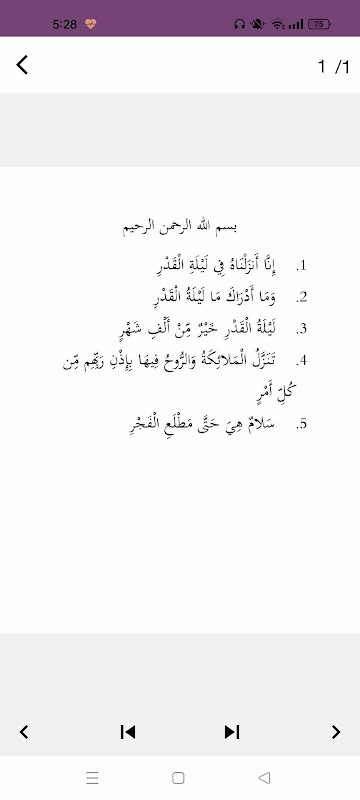 5:28
75
1 /1
بسم الله الرحمن الرحيم
1. إِنَّا أَنزَلْنَاهُ فِي لَيْلَةِ الْقَدْرِ
2. وَمَا أَدْرَاكَ مَا لَيْلَةُ الْقَدْرِ
3. لَيْلَةُ الْقَدْرِ خَيْرٌ مِّنْ أَلْفِ شَهْرٍ
4. تَنَزَّلُ الْمَلائِكَةُ وَالرُّوحُ فِيهَا بِإِذْنِ رَبِّهِم مِّن
كُلِّ أَمْرٍ
5. سَلامٌ هِيَ حَتَّى مَطْلَعِ الْفَجْرِ